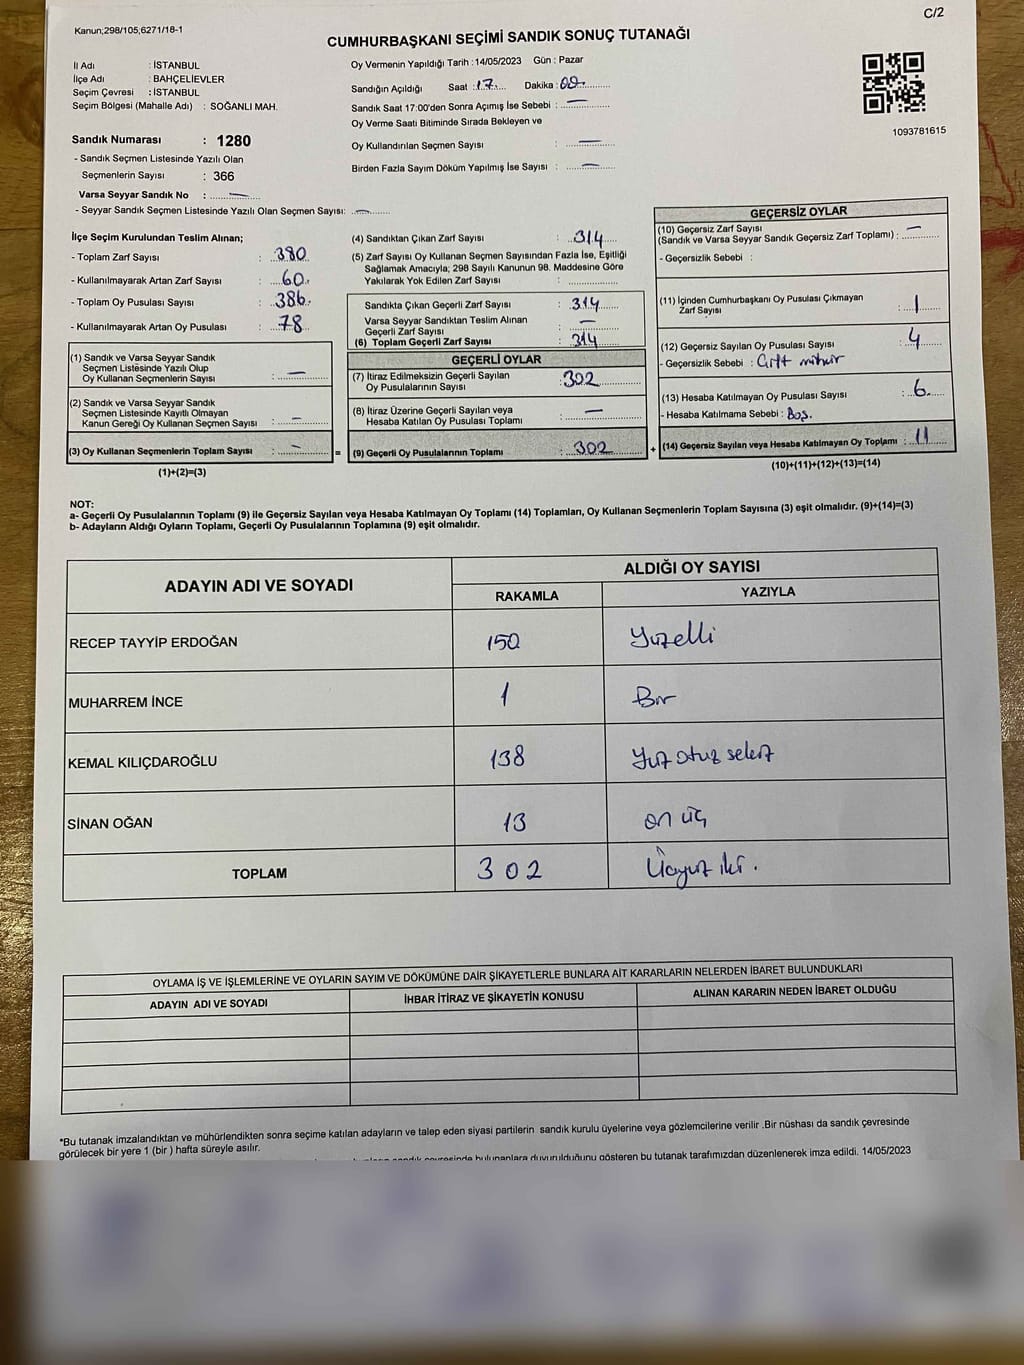 C/2
Kanun;298/105;6271/18-1
CUMHURBAŞKANI SEÇİMİ SANDIK SONUÇ TUTANAĞI
İl Adı : İSTANBUL
İlçe Adı : BAHÇELİEVLER
Seçim Çevresi : İSTANBUL
Seçim Bölgesi (Mahalle Adı) : SOĞANLI MAH.
Sandık Numarası : 1280
- Sandık Seçmen Listesinde Yazılı Olan
Seçmenlerin Sayısı : 366
Varsa Seyyar Sandık No : —
- Seyyar Sandık Seçmen Listesinde Yazılı Olan Seçmen Sayısı: —
Oy Vermenin Yapıldığı Tarih : 14/05/2023 Gün : Pazar
Sandığın Açıldığı Saat : 17 Dakika : 00
Sandık Saat 17:00'den Sonra Açımış İse Sebebi : —
Oy Verme Saati Bitiminde Sırada Bekleyen ve
Oy Kullandırılan Seçmen Sayısı : —
Birden Fazla Sayım Döküm Yapılmış İse Sayısı : —
1093781615
İlçe Seçim Kurulundan Teslim Alınan;
- Toplam Zarf Sayısı : 380
- Kullanılmayarak Artan Zarf Sayısı : 60
- Toplam Oy Pusulası Sayısı : 386
- Kullanılmayarak Artan Oy Pusulası : 78
(1) Sandık ve Varsa Seyyar Sandık
Seçmen Listesinde Yazılı Olup
Oy Kullanan Seçmenlerin Sayısı : —
(2) Sandık ve Varsa Seyyar Sandık
Seçmen Listesinde Kayıtlı Olmayan
Kanun Gereği Oy Kullanan Seçmen Sayısı : —
(3) Oy Kullanan Seçmenlerin Toplam Sayısı : —
(1)+(2)=(3)
=
(4) Sandıktan Çıkan Zarf Sayısı : 314
(5) Zarf Sayısı Oy Kullanan Seçmen Sayısından Fazla İse, Eşitliği
Sağlamak Amacıyla; 298 Sayılı Kanunun 98. Maddesine Göre
Yakılarak Yok Edilen Zarf Sayısı :
Sandıkta Çıkan Geçerli Zarf Sayısı : 314
Varsa Seyyar Sandıktan Teslim Alınan
Geçerli Zarf Sayısı : —
(6) Toplam Geçerli Zarf Sayısı : 314
GEÇERLİ OYLAR
(7) İtiraz Edilmeksizin Geçerli Sayılan
Oy Pusulalarının Sayısı : 302
(8) İtiraz Üzerine Geçerli Sayılan veya
Hesaba Katılan Oy Pusulası Toplamı : —
(9) Geçerli Oy Pusulalarının Toplamı : 302
+
GEÇERSİZ OYLAR
(10) Geçersiz Zarf Sayısı
(Sandık ve Varsa Seyyar Sandık Geçersiz Zarf Toplamı) : —
- Geçersizlik Sebebi :
(11) İçinden Cumhurbaşkanı Oy Pusulası Çıkmayan
Zarf Sayısı : 1
(12) Geçersiz Sayılan Oy Pusulası Sayısı : 4
- Geçersizlik Sebebi : Çift mühür
(13) Hesaba Katılmayan Oy Pusulası Sayısı : 6
- Hesaba Katılmama Sebebi : Boş.
(14) Geçersiz Sayılan veya Hesaba Katılmayan Oy Toplamı : 11
(10)+(11)+(12)+(13)=(14)
NOT:
a- Geçerli Oy Pusulalarının Toplamı (9) ile Geçersiz Sayılan veya Hesaba Katılmayan Oy Toplamı (14) Toplamları, Oy Kullanan Seçmenlerin Toplam Sayısına (3) eşit olmalıdır. (9)+(14)=(3)
b- Adayların Aldığı Oyların Toplamı, Geçerli Oy Pusulalarının Toplamına (9) eşit olmalıdır.
ADAYIN ADI VE SOYADI ALDIĞI OY SAYISI
RAKAMLA YAZIYLA
RECEP TAYYİP ERDOĞAN 150 Yüzelli
MUHARREM İNCE 1 Bir
KEMAL KILIÇDAROĞLU 138 Yüz otuz sekiz
SİNAN OĞAN 13 on üç
TOPLAM 302 Üçyüz iki.
OYLAMA İŞ VE İŞLEMLERİNE VE OYLARIN SAYIM VE DÖKÜMÜNE DAİR ŞİKAYETLERLE BUNLARA AİT KARARLARIN NELERDEN İBARET BULUNDUKLARI
ADAYIN ADI VE SOYADI İHBAR İTİRAZ VE ŞİKAYETİN KONUSU ALINAN KARARIN NEDEN İBARET OLDUĞU
*Bu tutanak imzalandıktan ve mühürlendikten sonra seçime katılan adayların ve talep eden siyasi partilerin sandık kurulu üyelerine veya gözlemcilerine verilir .Bir nüshası da sandık çevresinde
görülecek bir yere 1 (bir ) hafta süreyle asılır.
sandık çevresinde bulunanlara duyurulduğunu gösteren bu tutanak tarafımızdan düzenlenerek imza edildi. 14/05/2023